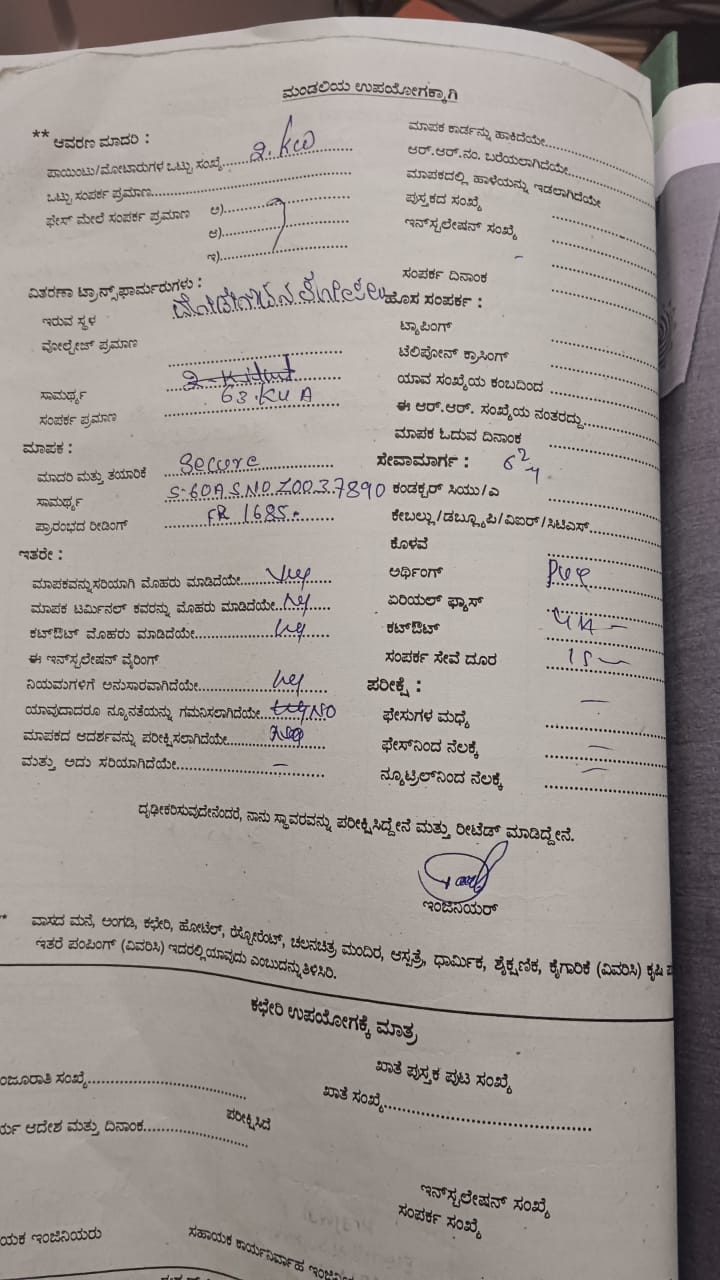 ಮಂಡಲಿಯ ಉಪಯೋಗಕ್ಕಾಗಿ
** ಆವರಣ ಮಾದರಿ :
ಪಾಯಿಂಟು/ಮೋಟಾರುಗಳ ಒಟ್ಟು ಸಂಖ್ಯೆ..... 2.KW
ಒಟ್ಟು ಸಂಪರ್ಕ ಪ್ರಮಾಣ.....
ಫೇಸ್ ಮೇಲೆ ಸಂಪರ್ಕ ಪ್ರಮಾಣ ಅ).....
ಆ).....
ಇ).....
ವಿತರಣಾ ಟ್ರಾನ್ಸ್‌ಫಾರ್ಮರುಗಳು :
ಇರುವ ಸ್ಥಳ
ವೋಲ್ಟೇಜ್ ಪ್ರಮಾಣ
ಸಾಮರ್ಥ್ಯ 63.KVA
ಸಂಪರ್ಕ ಪ್ರಮಾಣ
ಮಾಪಕ :
ಮಾದರಿ ಮತ್ತು ತಯಾರಿಕೆ Secure
ಸಾಮರ್ಥ್ಯ 5-60A SNO Z0037890
ಪ್ರಾರಂಭದ ರೀಡಿಂಗ್ FR 1685.
ಇತರೇ :
ಮಾಪಕವನ್ನುಸರಿಯಾಗಿ ಮೊಹರು ಮಾಡಿದೆಯೇ.....
ಮಾಪಕ ಟರ್ಮಿನಲ್ ಕವರನ್ನು ಮೊಹರು ಮಾಡಿದೆಯೇ.....
ಕಟ್‌ಔಟ್ ಮೊಹರು ಮಾಡಿದೆಯೇ.....
ಈ ಇನ್‌ಸ್ಟಲೇಷನ್ ವೈರಿಂಗ್
ನಿಯಮಗಳಿಗೆ ಅನುಸಾರವಾಗಿದೆಯೇ.....
ಯಾವುದಾದರೂ ನ್ಯೂನತೆಯನ್ನು ಗಮನಿಸಲಾಗಿದೆಯೇ..... NO
ಮಾಪಕದ ಆದರ್ಶವನ್ನು ಪರೀಕ್ಷಿಸಲಾಗಿದೆಯೇ.....
ಮತ್ತು ಅದು ಸರಿಯಾಗಿದೆಯೇ..... –
ಮಾಪಕ ಕಾರ್ಡನ್ನು ಹಾಕಿದೆಯೇ.....
ಆರ್.ಆರ್.ನಂ. ಬರೆಯಲಾಗಿದೆಯೇ.....
ಮಾಪಕದಲ್ಲಿ ಹಾಳೆಯನ್ನು ಇಡಲಾಗಿದೆಯೇ
ಪುಸ್ತಕದ ಸಂಖ್ಯೆ
ಇನ್‌ಸ್ಟಲೇಷನ್ ಸಂಖ್ಯೆ
ಸಂಪರ್ಕ ದಿನಾಂಕ
ಹೊಸ ಸಂಪರ್ಕ :
ಟ್ಯಾಪಿಂಗ್
ಟೆಲಿಪೋನ್ ಕ್ರಾಸಿಂಗ್
ಯಾವ ಸಂಖ್ಯೆಯ ಕಂಬದಿಂದ .....
ಈ ಆರ್.ಆರ್. ಸಂಖ್ಯೆಯ ನಂತರದ್ದು.....
ಮಾಪಕ ಓದುವ ದಿನಾಂಕ
ಸೇವಾಮಾರ್ಗ :
ಕಂಡಕ್ಟರ್ ಸಿಯು/ಎ
ಕೇಬಲ್ಲು/ಡಬ್ಲ್ಯೂಪಿ/ವಿಐರ್/ಸಿಟಿಎಸ್.....
ಕೊಳವೆ
ಅರ್ಥಿಂಗ್
ಏರಿಯಲ್ ಫ್ಯೂಸ್
ಕಟ್‌ಔಟ್
ಸಂಪರ್ಕ ಸೇವೆ ದೂರ 15
ಪರೀಕ್ಷೆ :
ಫೇಸುಗಳ ಮಧ್ಯೆ –
ಫೇಸ್‌ನಿಂದ ನೆಲಕ್ಕೆ –
ನ್ಯೂಟ್ರಿಲ್‌ನಿಂದ ನೆಲಕ್ಕೆ –
ದೃಢೀಕರಿಸುವುದೇನೆಂದರೆ, ನಾನು ಸ್ಥಾವರವನ್ನು ಪರೀಕ್ಷಿಸಿದ್ದೇನೆ ಮತ್ತು ರೀಟೆಡ್ ಮಾಡಿದ್ದೇನೆ.
ಇಂಜಿನಿಯರ್
* ವಾಸದ ಮನೆ, ಅಂಗಡಿ, ಕಛೇರಿ, ಹೋಟೆಲ್, ರೆಸ್ಟೋರೆಂಟ್, ಚಲನಚಿತ್ರ ಮಂದಿರ, ಆಸ್ಪತ್ರೆ, ಧಾರ್ಮಿಕ, ಶೈಕ್ಷಣಿಕ, ಕೈಗಾರಿಕೆ (ವಿವರಿಸಿ) ಕೃಷಿ
ಇತರೆ ಪಂಪಿಂಗ್ (ವಿವರಿಸಿ) ಇದರಲ್ಲಿಯಾವುದು ಎಂಬುದನ್ನುತಿಳಿಸಿರಿ.
ಕಛೇರಿ ಉಪಯೋಗಕ್ಕೆ ಮಾತ್ರ
ಂಜೂರಾತಿ ಸಂಖ್ಯೆ.....
ಖಾತೆ ಪುಸ್ತಕ ಪುಟ ಸಂಖ್ಯೆ
ಖಾತೆ ಸಂಖ್ಯೆ.....
ರ್ಯ ಆದೇಶ ಮತ್ತು ದಿನಾಂಕ.....
ಪರೀಕ್ಷಿಸಿದೆ
ಇನ್‌ಸ್ಟಲೇಷನ್ ಸಂಖ್ಯೆ
ಸಂಪರ್ಕ ಸಂಖ್ಯೆ
ಯಕ ಇಂಜಿನಿಯರು
ಸಹಾಯಕ ಕಾರ್ಯನಿರ್ವಾಹ ಇಂಜಿನಿ